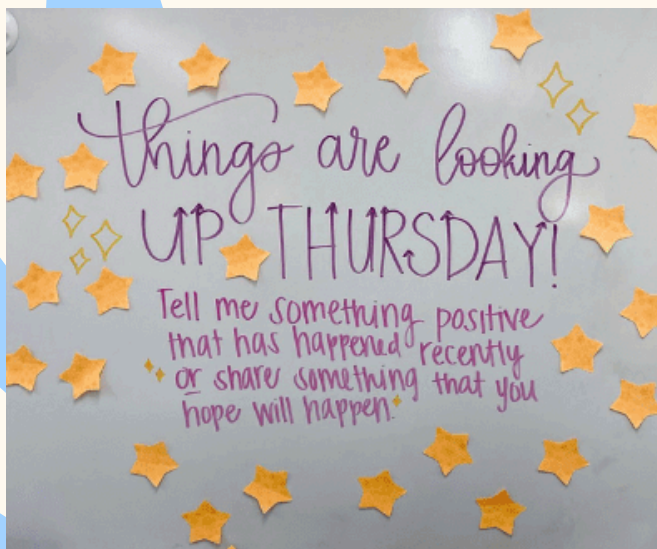 things are looking
UP THURSDAY!
Tell me something positive
that has happened recently
or share something that you
hope will happen.